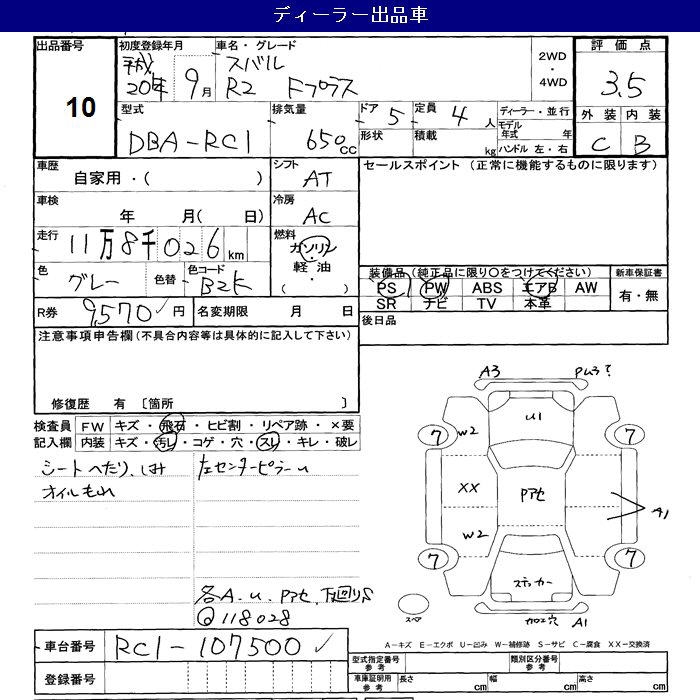 ディーラー出品車
出品番号 初度登録年月 車名・グレード 評価点
平成 スバル 2WD
20年 9月 R2 Fプラス ・ 3.5
4WD
10 型式 排気量 ドア 5 定員 4人 ディーラー・並行 外装 内装
DBA-RC1 650cc 形状 積載 kg モデル年式 年 C B
ハンドル 左・右
車歴 シフト セールスポイント (正常に機能するものに限ります)
自家用・( ) AT
車検 冷房
年 月( 日) AC
走行 11万8千026km 燃料
ガソリン
色 グレー 色替 色コード B2K 軽油 装備品(純正品に限り○をつけてください) 新車保証書
・( ) PS PW ABS エアB AW 有・無
SR ナビ TV 本革
R券 9,570円 名変期限 月 日 後日品
注意事項申告欄(不具合内容等は具体的に記入して下さい)
修復歴 有 〔箇所 〕
検査員 FW キズ・飛石・ヒビ割・リペア跡・×要
記入欄 内装 キズ・汚レ・コゲ・穴・スレ・キレ・破レ
シートへたり、しみ 左センターピラーu
オイルもれ
各A.u.Pアセ、下回りS
@118028
A3 PU3?
U1
7 W2 7
XX Pアセ A1
W2
7 ステッカー 7
スペア カロエ穴 A1
A-キズ E-エクボ U-凹み W-補修跡 S-サビ C-腐食 XX-交換済
車台番号 RC1-107500 型式指定番号 参考 類別区分番号 参考
登録番号 車庫証明用 参考 長さ cm 幅 cm 高さ cm